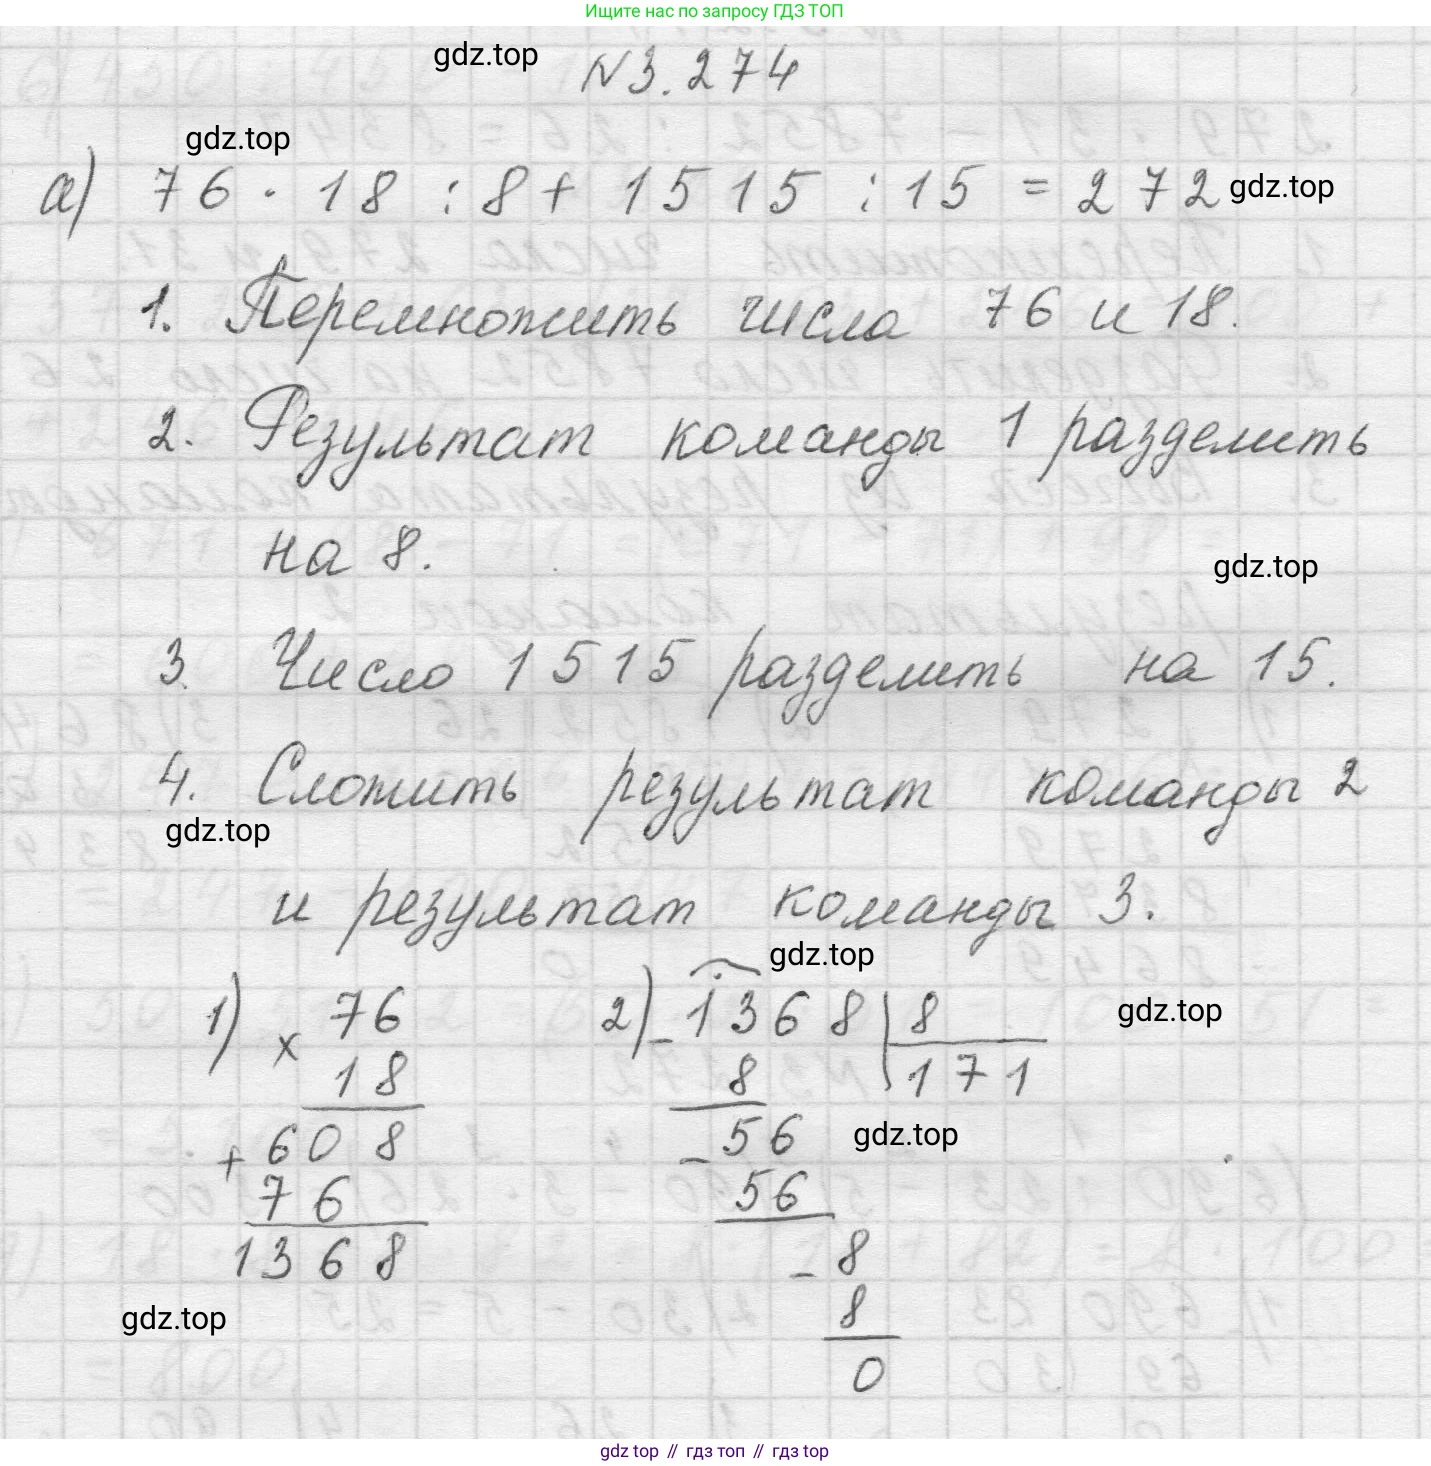 Ищите нас по запросу ГДЗ ТОП
gdz.top
N3.274
gdz.top
а) 76 · 18 : 8 + 1515 : 15 = 272 gdz.top
1. Перемножить числа 76 и 18.
2. Результат команды 1 разделить
на 8.
gdz.top
3. Число 1515 разделить на 15.
4. Сложить результат команды 2
gdz.top
и результат команды 3.
gdz.top
1) 76 2) 1368 | 8
gdz.top
x 18 - 8 171
+ 608 - 56 gdz.top
76 56
1368 - 8
gdz.top 8
0
gdz top // гдз топ // gdz.top